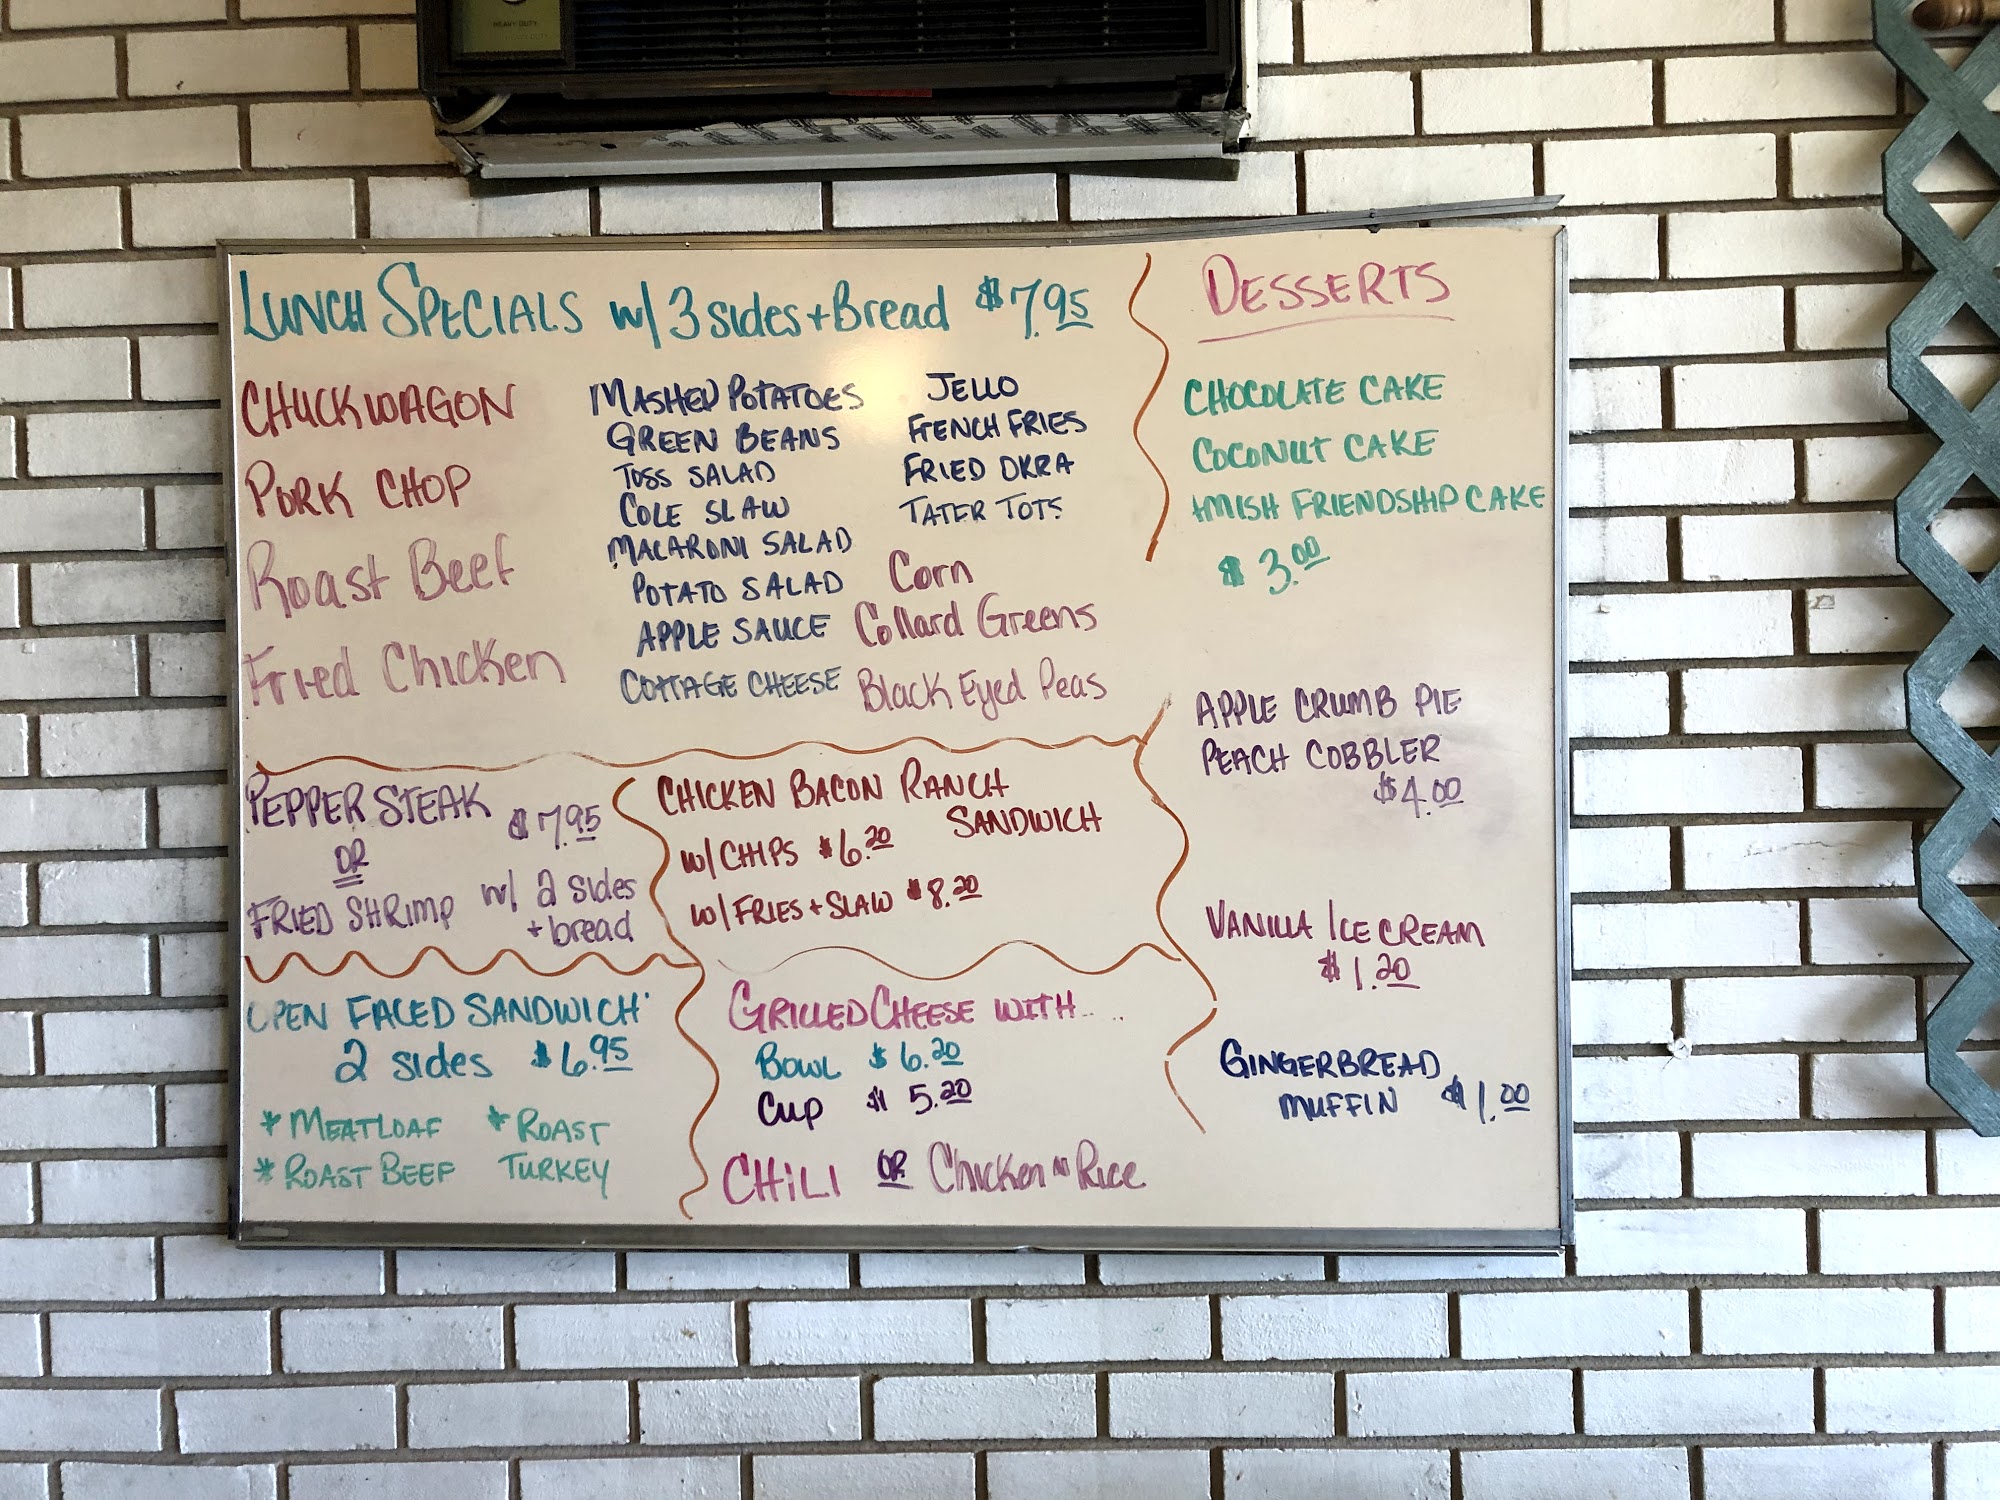 HEAVY DUTY
LUNCH SPECIALS w/ 3 sides + Bread $7.95
CHUCKWAGON
PORK CHOP
Roast Beef
Fried Chicken
MASHED POTATOES
GREEN BEANS
TOSS SALAD
COLE SLAW
MACARONI SALAD
POTATO SALAD
APPLE SAUCE
COTTAGE CHEESE
JELLO
FRENCH FRIES
FRIED OKRA
TATER TOTS
Corn
Collard Greens
Black Eyed Peas
PEPPER STEAK $7.95
OR
FRIED SHRIMP w/ 2 sides
+ bread
CHICKEN BACON RANCH
SANDWICH
w/ CHIPS $6.20
w/ FRIES + SLAW $8.20
OPEN FACED SANDWICH
2 sides $6.95
* MEATLOAF
* ROAST BEEF
* ROAST
TURKEY
GRILLED CHEESE WITH....
BOWL $6.20
CUP $5.20
CHiLI OR Chicken N Rice
DESSERTS
CHOCOLATE CAKE
COCONUT CAKE
AMISH FRIENDSHIP CAKE
$3.00
APPLE CRUMB PIE
PEACH COBBLER
$4.00
VANILLA ICE CREAM
$1.20
GINGERBREAD
MUFFIN $1.00